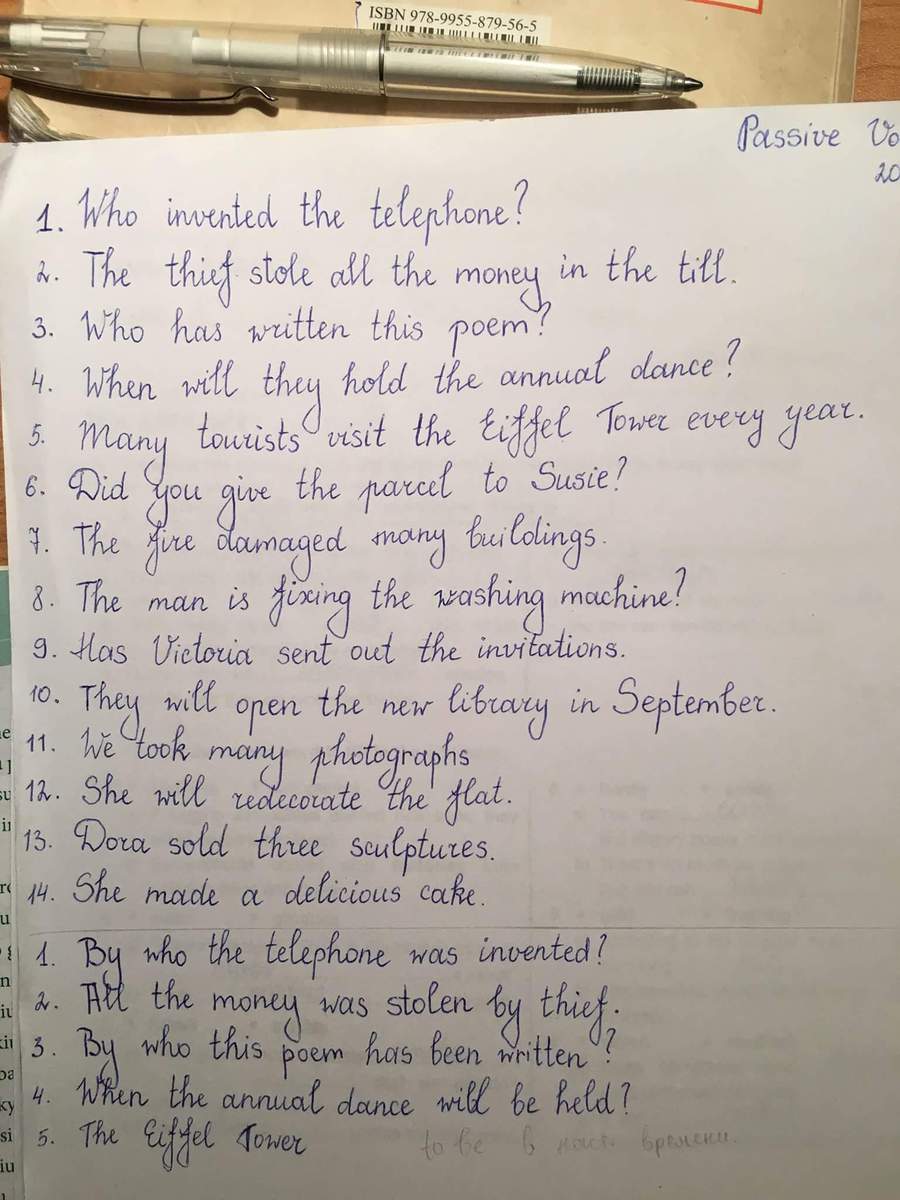 ISBN 978-9955-879-56-5
Passive Vo
20
1. Who invented the telephone?
2. The thief stole all the money in the till.
3. Who has written this poem?
4. When will they hold the annual dance?
5. Many tourists visit the Eiffel Tower every year.
6. Did you give the parcel to Susie?
7. The fire damaged many buildings.
8. The man is fixing the washing machine?
9. Has Victoria sent out the invitations.
10. They will open the new library in September.
11. We took many photographs
12. She will redecorate the flat.
13. Dora sold three sculptures.
14. She made a delicious cake.
1. By who the telephone was invented?
2. All the money was stolen by thief.
3. By who this poem has been written?
4. When the annual dance will be held?
5. The Eiffel Tower to be в наст. времени.